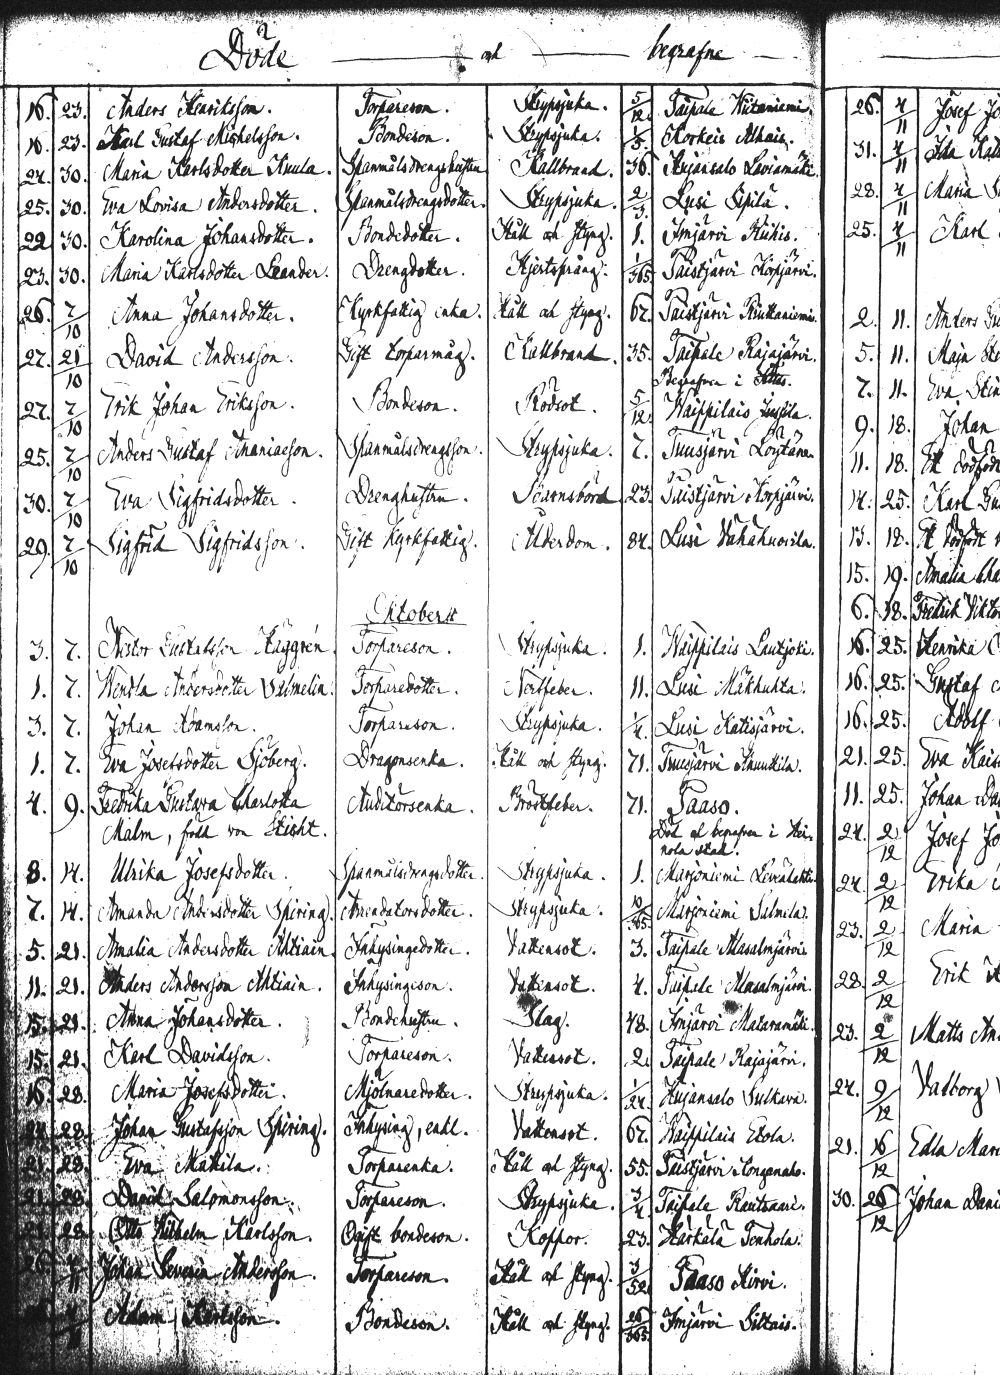 Döde och begrafne
16. 23. Anders Henriksson. Torpareson. Strypsjuka. 5/12. Taipale Niitaniemi.
16. 23. Karl Gustaf Mickelsson. Bondeson. Strypsjuka. Korkeis Alhais.
24. 30. Maria Karlsdotter Kuula. Spanmålsdrengshustru Kallbrand. 36. Kujansalo Laviamäki.
25. 30. Eva Lovisa Andersdotter. Spanmålsdrengsdotter. Strypsjuka. 2/3. Lusi Sipilä.
22. 30. Karolina Johansdotter. Bondedotter. Håll och styng. 1. Imjärvi Kiikis.
23. 30. Maria Karlsdotter Leander. Drengdotter. Hjertsprång. 1/365. Taistjärvi Korpjärvi.
26. 7/10 Anna Johansdotter. Kyrkfattig enka. Håll och styng. 67. Paistjärvi Riuttaniemi.
27. 21/10 David Andersson. Gift torparmåg. Kallbrand. 35. Taipale Rajajärvi.
Begrafven i
27. 7/10 Erik Johan Eriksson. Bondeson. Rödsot. 5/12. Waippilais Jussila.
25. 7/10 Anders Gustaf Ananiasson. Spanmålsdrengsson. Strypsjuka. 7. Tuusjärvi Löytäne.
30. 7/10 Eva Sigfridsdotter. Drenghustru. Barnsbörd 23. Taistjärvi Korpjärvi.
29. 7/10 Sigfrid Sigfridsson. Gift Kyrkfattig. Ålderdom. 84. Lusi Vähähuovila.
Oktober
3. 7. Nestor Gustafsson Häggrén. Torpareson. Strypsjuka. 1. Waippilais Lautjoki.
1. 7. Wendla Andersdotter Salmelin. Torparedotter. Nerffeber. 11. Lusi Mäkhuhta.
3. 7. Johan Adamsson. Torpareson. Strypsjuka. 1/4. Lusi Katisjärvi.
1. 7. Eva Josefsdotter Sjöberg. Dragonsenka. Håll och styng. 71. Tuusjärvi Knuutila.
4. 9. Fredrika Gustava Charlotta Auditörsenka. Bröstfeber. 71. Paaso.
Malm, född von Död och begrafven i Hei-
nola stad.
8. 14. Ulrika Josefsdotter. Spanmålsdrengsdotter. Strypsjuka. 1. Marjoniemi Levälahti.
7. 14. Amanda Andersdotter Spiring. Arrendatorsdotter. Strypsjuka. 10/365. Marjoniemi Salmela.
5. 21. Amalia Andersdotter Ahtiain. Inhysingedotter. Vattensot. 3. Taipale Masalmjärvi.
11. 21. Anders Andersson Ahtiain. Inhysingeson. Vattensot. 4. Taipale Masalmjärvi.
15. 21. Anna Johansdotter. Bondehustru. Slag. 48. Imjärvi Mataramäki.
15. 21. Karl Davidsson. Torpareson. Vattensot. 2. Taipale Rajajärvi.
16. 28. Maria Josefsdotter. Mjölnaredotter. Strypsjuka. 1/24. Kujansalo Sulkava.
24. 28. Johan Gustafsson Spiring. Inhysing, enkl. Vattensot. 67. Waippilais Etola.
21. 28. Eva Mattila. Torparenka. Håll och styng. 55. Paistjärvi Honganaho.
21. 28. David Salomonsson. Torpareson. Strypsjuka. 3/4 Taipale Rautsaari.
21. 28. Otto Wilhelm Karlsson. Ogift bondeson. Koppor. 23. Härkälä Tenhola.
26. Johan Severin Andersson. Torpareson. Håll och styng. 3/52. Paaso Hirvi.
Adam Karlsson. Bondeson. Håll och styng. 26/365. Imjärvi Siltais.
26. 4/11 Josef
31. 4/11 Ida
28. 4/11 Maria
25. 4/11 Karl
2. 11. Anders
5. 11. Maja
7. 11. Eva
9. 18. Johan
11. 18. Ett dödfödt
14. 25. Karl
13. 18. Ett dödfödt
15. 19. Amalia
6. 18. Fredrik Viktor
16. 25. Henrika
16. 25. Gustaf
16. 25. Adolf
21. 25. Eva Kaisa
11. 25. Johan
24. 2/12 Josef
24. 2/12 Erika
23. 2/12 Maria
28. 2/12 Erik
23. 2/12 Matts
24. 9/12 Valborg
21. 16/12 Edla
30. 26/12 Johan